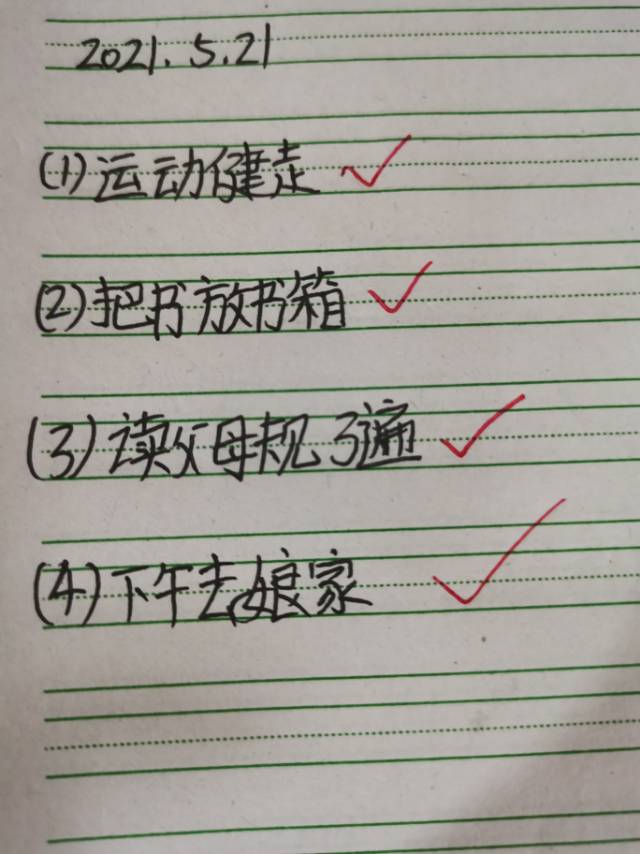 2021.5.21
(1)运动健走
(2)把书放书箱
(3)读父母规3遍
(4)下午去娘家